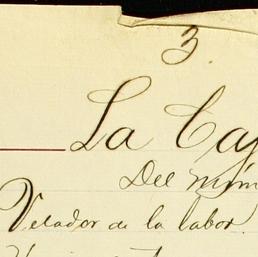 3.
La Caj
Del núm
Velador de la labor.